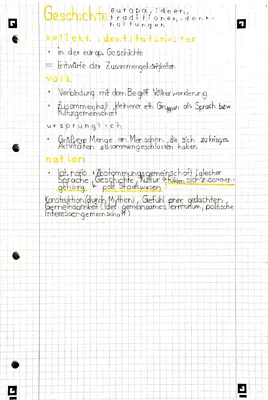 Geschichte europa, ideen,
traditionen, denk-
haltungen
kollekt. identitätsmuster
• in der europ. Geschichte
= Entwürfe der Zusammengehörigkeiten
volk
• Verbindung mit dem Begriff Völkerwanderung
• Zusammenhalt kleinerer eth. Gruppen als Sprach bzw.
Kulturgemeinschaft
ursprünglich
• Größere Menge an Menschen, die sich zu
Aktivitäten zusammengeschlossen haben
nation
• lat. natio = Abstammungsgemeinschaft (gleicher
Sprache, Geschichte, Kultur → fühlen sich zusammen-
gehörig → pol. Staatswesen
Konstruktion (durch Mythen), Gefühl einer gedachten
Gemeinsamkeit (Idee gemeinsames Territorium, politische
Interessengemeinschaft)